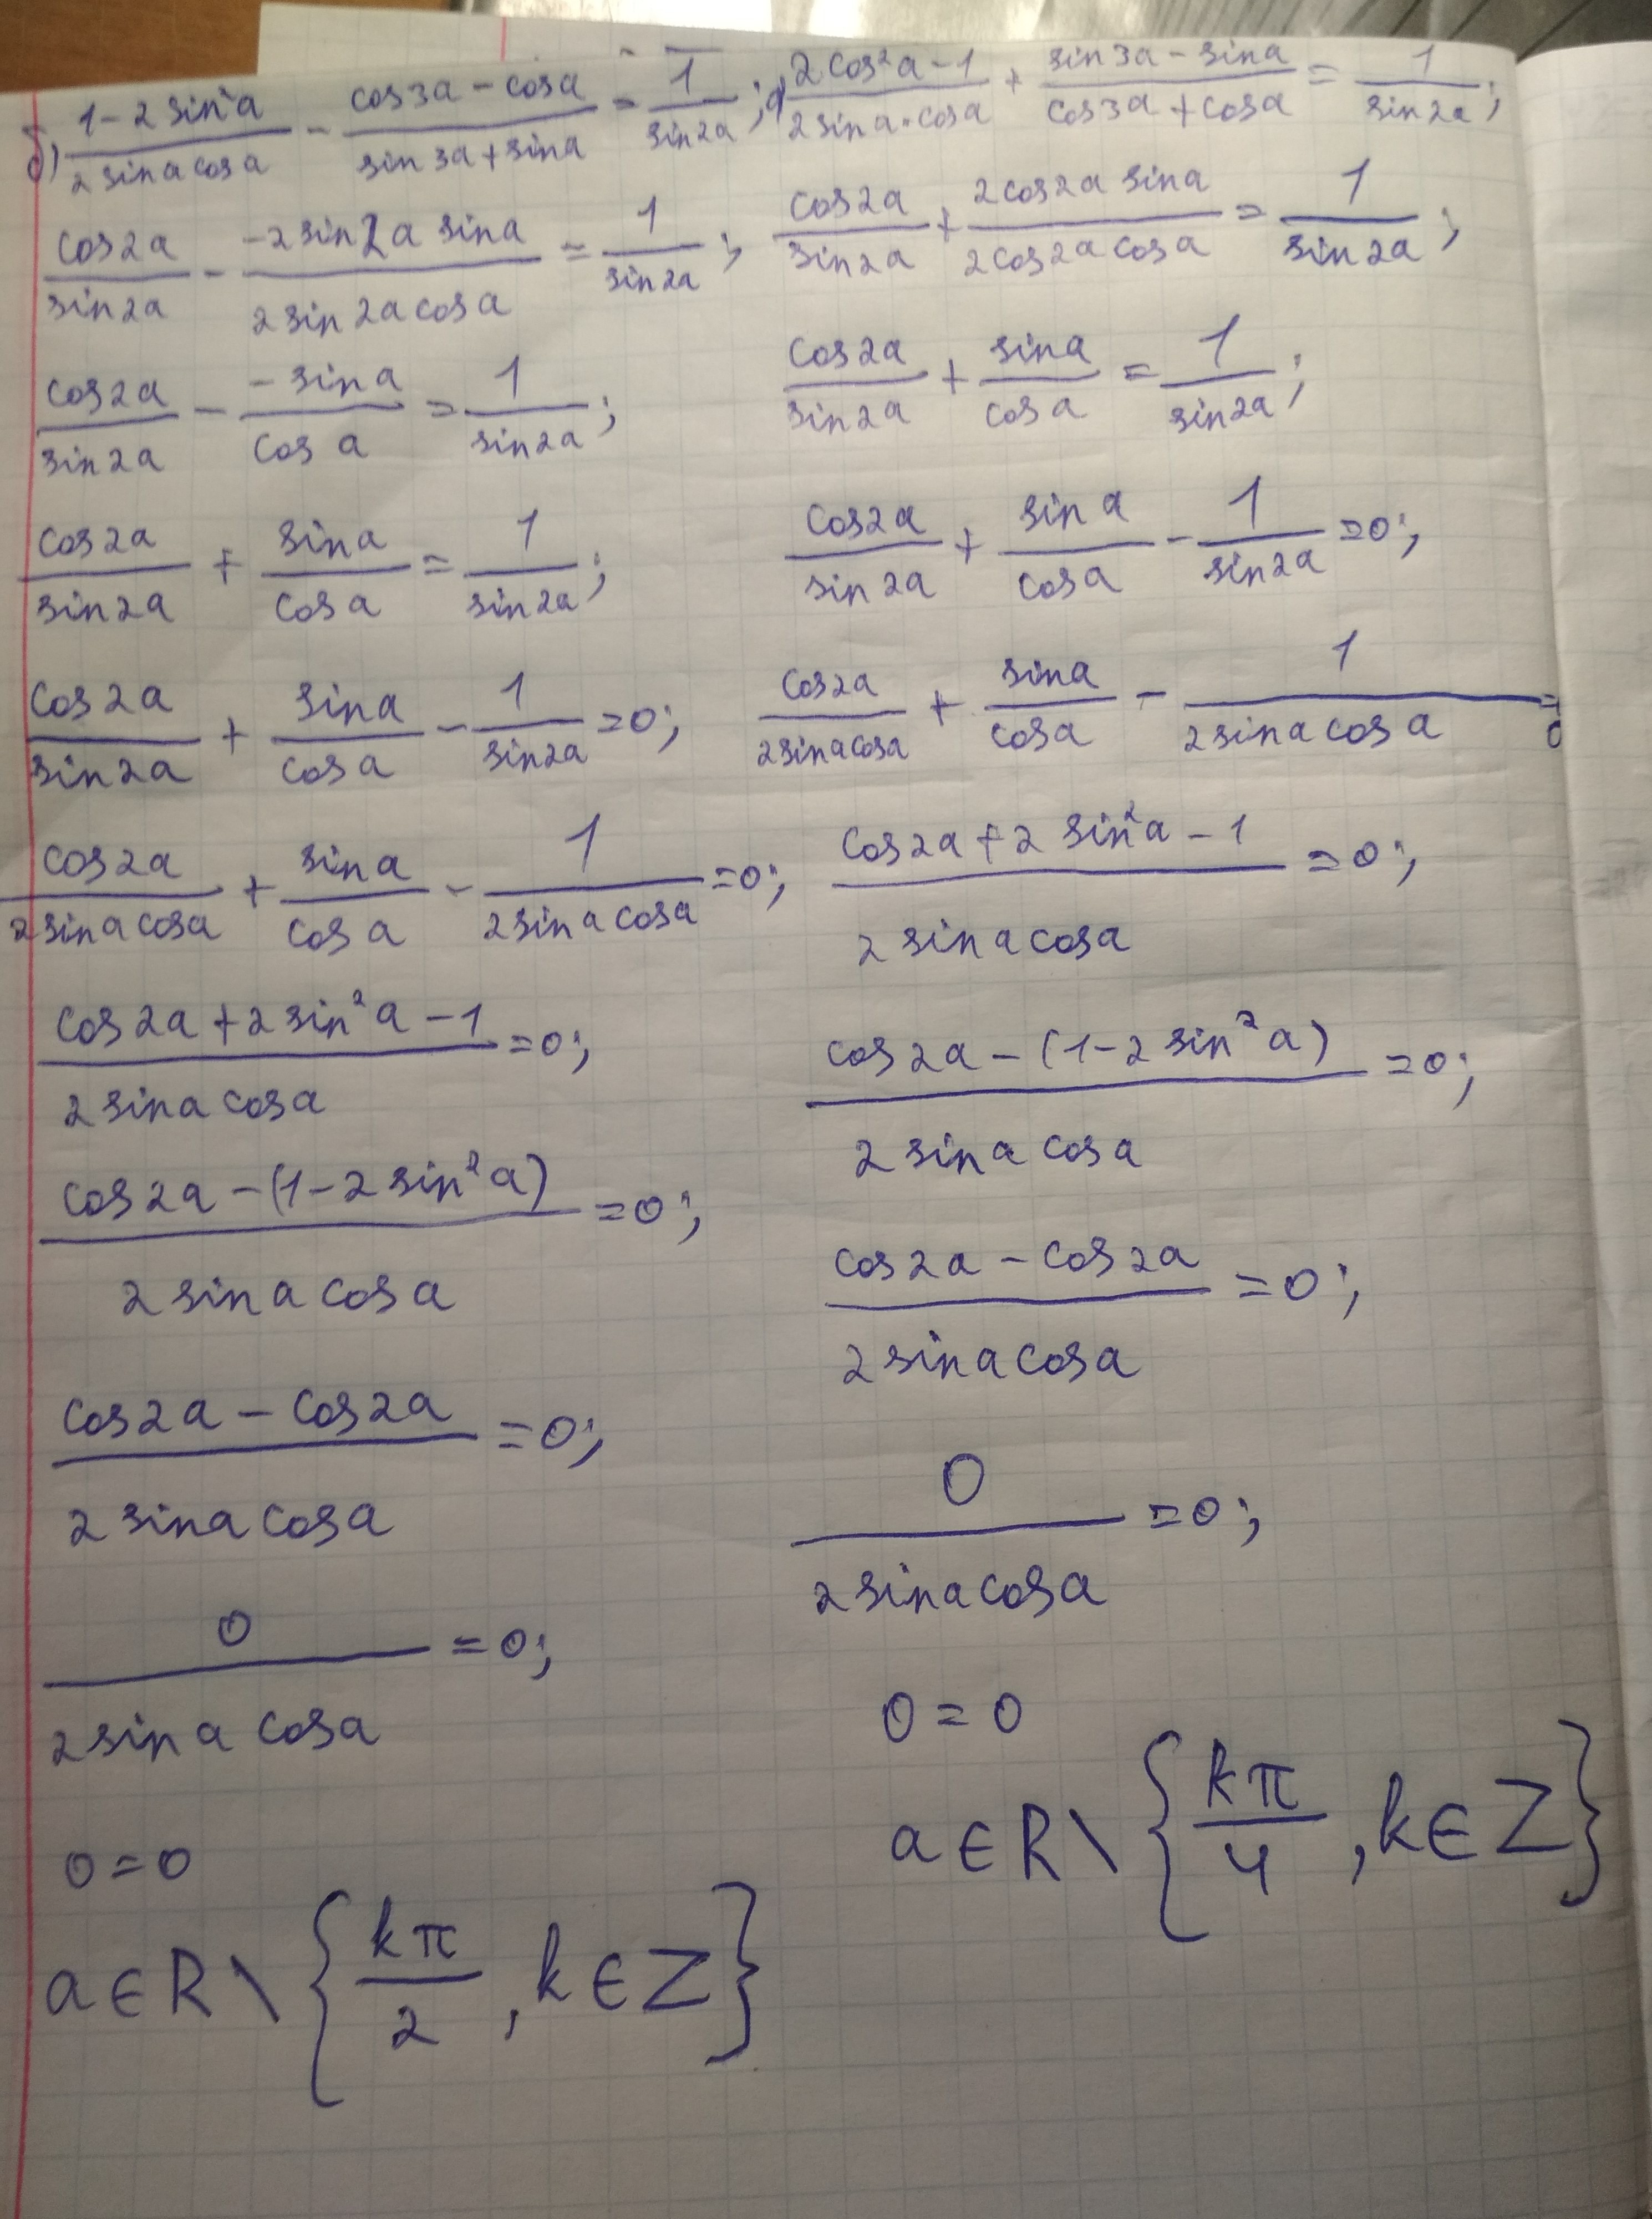 б) (1-2sin²a)/(2sinacosa) - (cos3a-cosa)/(sin3a+sina) = 1/sin2a;
cos2a/sin2a - (-2sin2a sina)/(2sin2acosa) = 1/sin2a;
cos2a/sin2a - (-sina)/cosa = 1/sin2a;
cos2a/sin2a + sina/cosa = 1/sin2a;
cos2a/sin2a + sina/cosa - 1/sin2a =0;
cos2a/(2sinacosa) + sina/cosa - 1/(2sinacosa) =0;
(cos2a+2sin²a-1)/(2sinacosa) =0;
(cos2a-(1-2sin²a))/(2sinacosa) =0;
(cos2a-cos2a)/(2sinacosa) =0;
0/(2sinacosa) =0;
0=0
a∈R\{kπ/2, k∈Z}
(2cos²a-1)/(2sina·cosa) + (sin3a-sina)/(cos3a+cosa) = 1/sin2a;
cos2a/sin2a + (2cos2a sina)/(2cos2acosa) = 1/sin2a;
cos2a/sin2a + sina/cosa = 1/sin2a;
cos2a/sin2a + sina/cosa - 1/sin2a =0;
cos2a/(2sinacosa) + sina/cosa - 1/(2sinacosa) =0
(cos2a+2sin²a-1)/(2sinacosa) =0;
(cos2a-(1-2sin²a))/(2sinacosa) =0;
(cos2a-cos2a)/(2sinacosa) =0;
0/(2sinacosa) =0;
0=0
a∈R\{kπ/4, k∈Z}